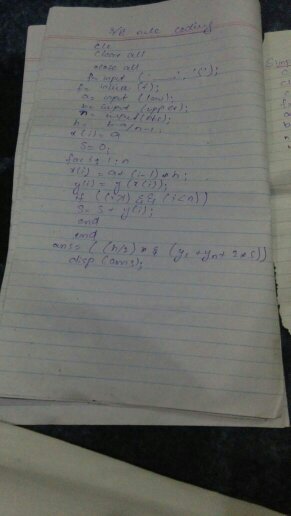 rule coding
clc
clear all
close all
f= input ('_____', 's');
f= inline (f);
a= input (low);
b= input (upper);
n= input (obs);
h=
x(1) = a
S=0;
for i=1:n
x(i) = a+ (i-1)*h;
y(i) = f(x(i));
if && (i<n))
S= S+ y(i);
end
end
ans= ( (h/2) * (y1 +yn+ 2*S))
disp (ans);